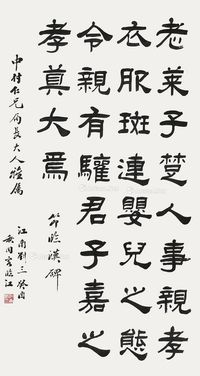 老萊子楚人事親孝
衣服斑連嬰兒之態
令親有驩君子嘉之
孝莫大焉
節臨漢碑
中村仁兄局長大人雅屬
江南劉三癸酉